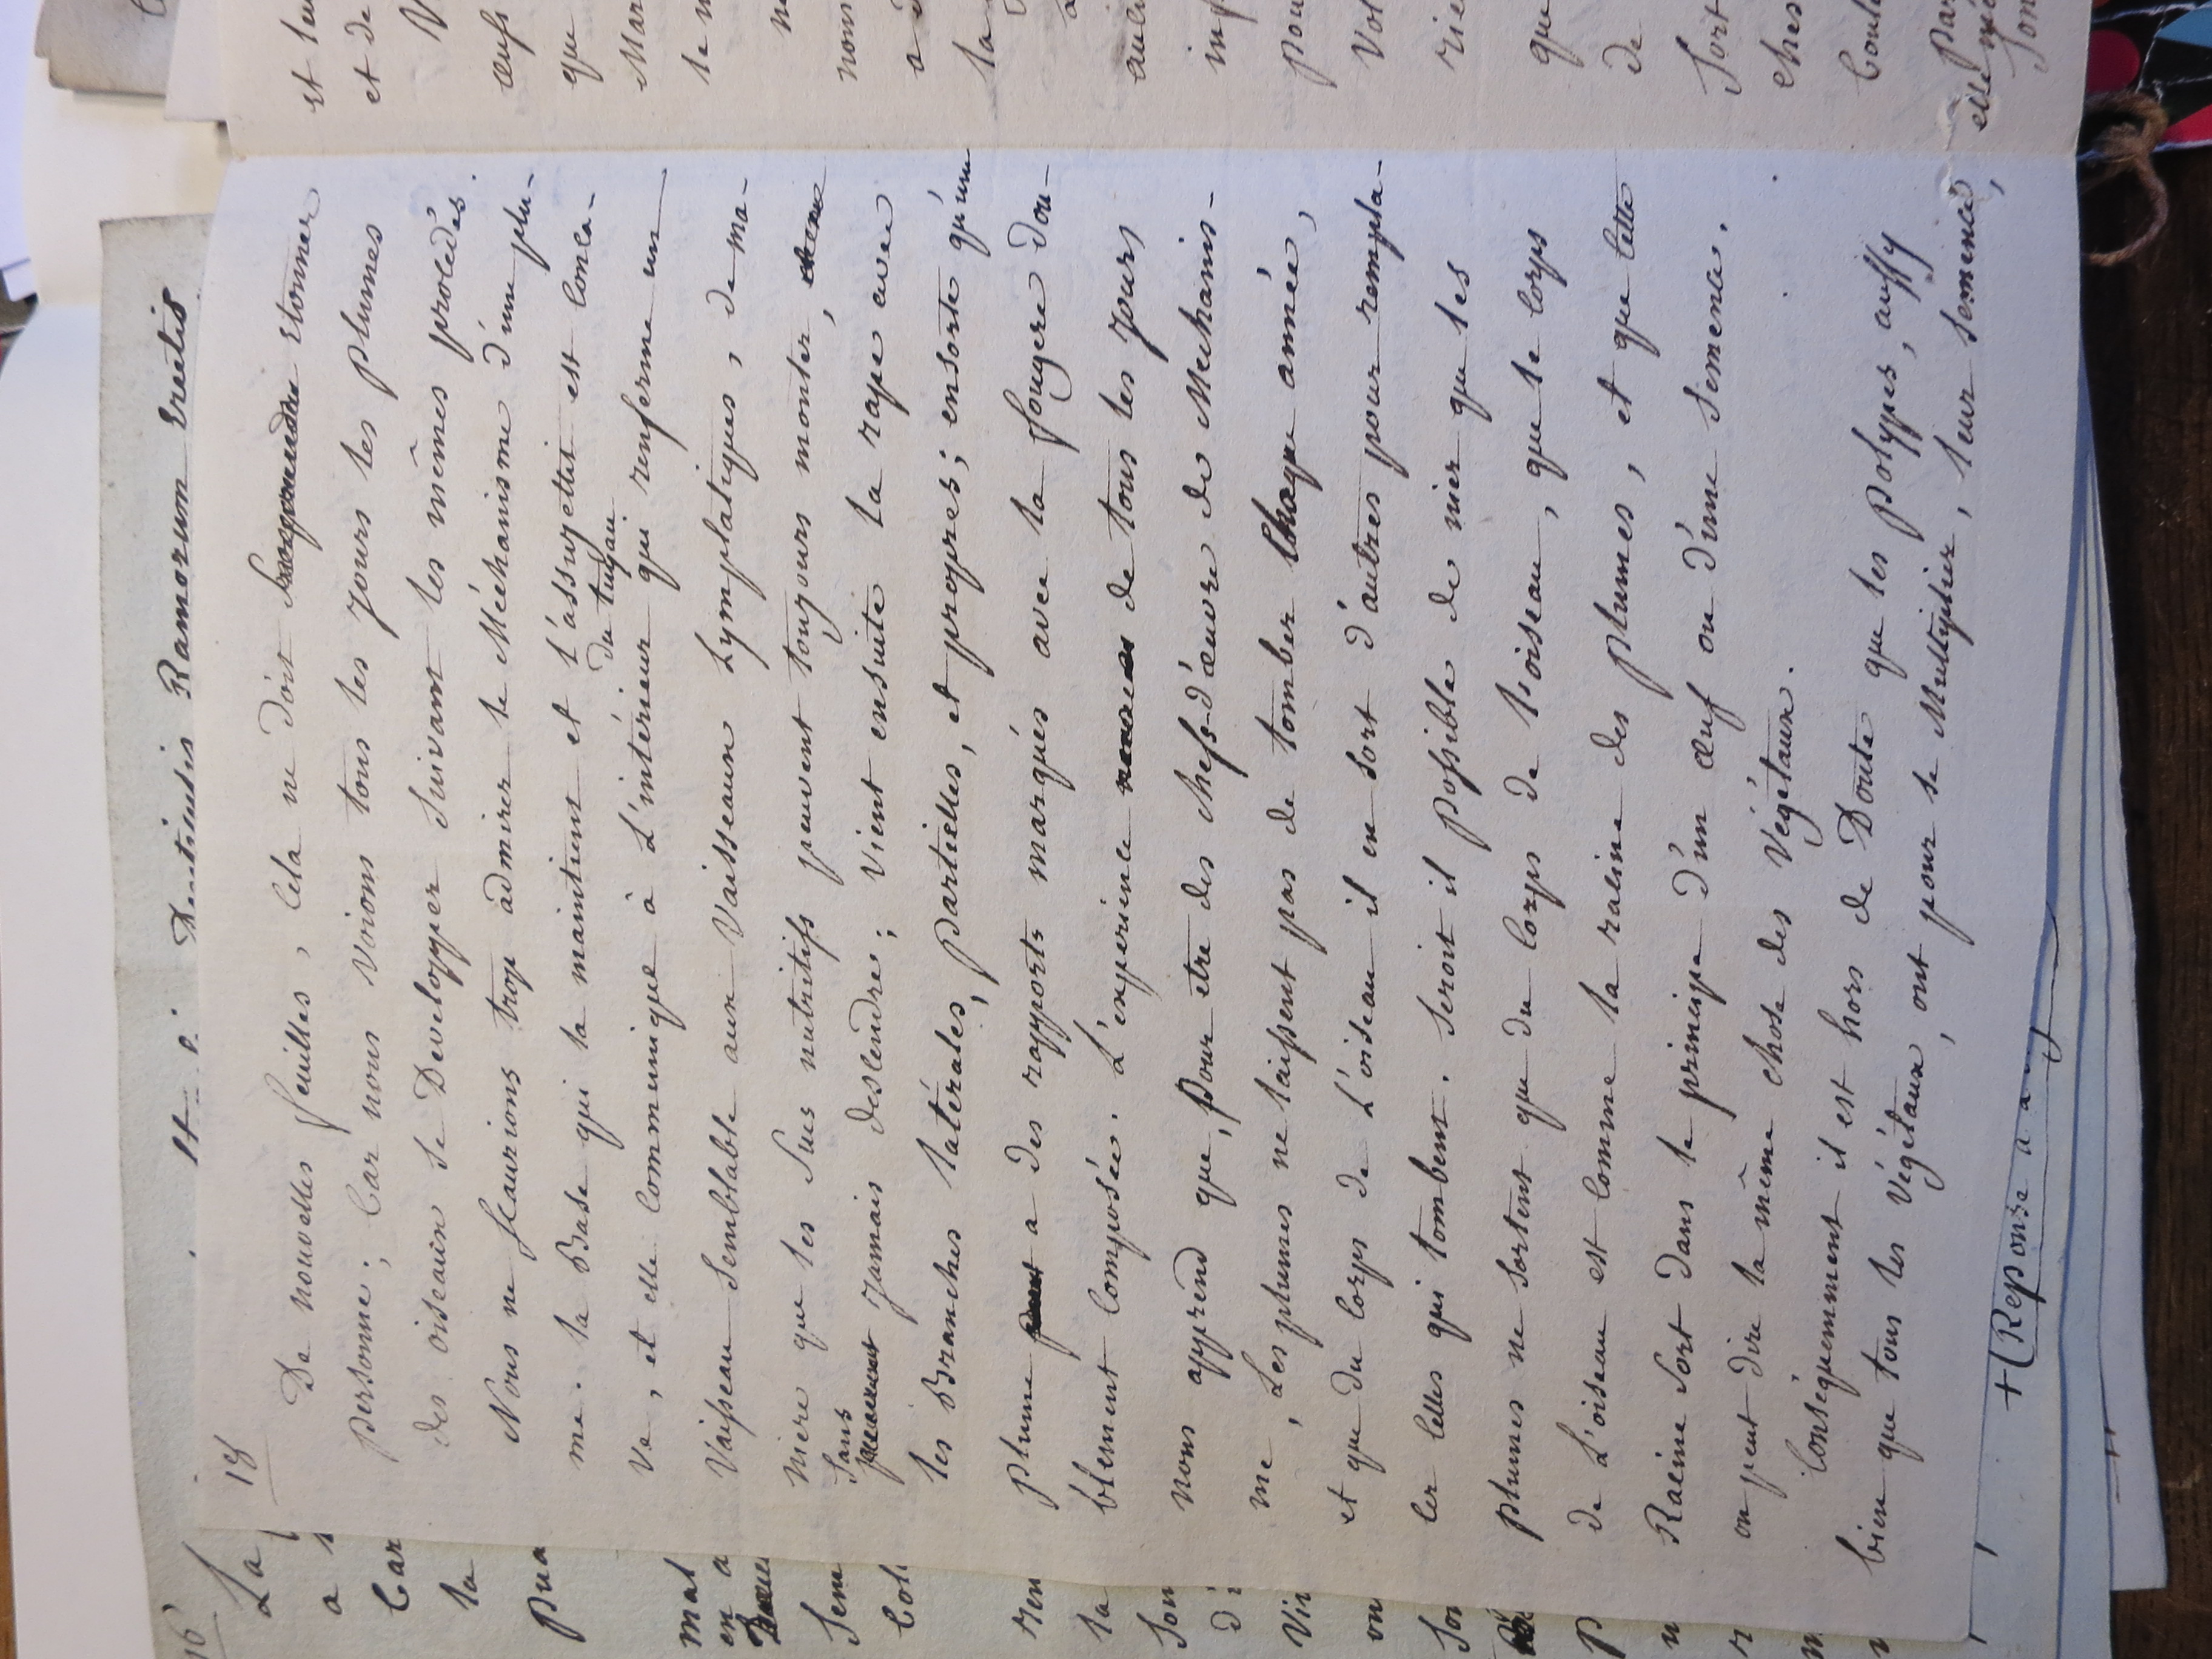 18
De nouvelles feuilles, Cela ne doit Surprendre Etonner
personne; Car nous voions tous les jours les plumes
des oiseaux se Developper suivant les mêmes procédés.
Nous ne sçaurions trop admirer le Méchanisme d'une plu-
me. la Base qui la maintient et l'assujettit est Conca-
du tuyau
ve, et elle Communique à L'intérieur qui renferme un
Vaisseau Semblable aux Vaisseaux Lymphatiques, de ma-
niere que les Sucs nutritifs peuvent toujours monter,
Sans
Jamais descendre; Vient ensuite la rape avec
les Branches latérales, partielles, et propres; ensorte qu'une
plume a des rapports marqués avec la fougere dou-
blement Composée. L'experience de tous les jours
nous apprend que, pour etre des chefs-d'œuvre de Mechanis-
me, Les plumes ne laissent pas de tomber Chaque année,
et que du Corps de L'oiseau il en sort d'autres pour rempla-
cer Celles qui tombent. Seroit il possible de nier que les
plumes ne sortent que du Corps de l'oiseau, que le Corps
de L'oiseau est Comme la racine des plumes, et que Cette
Racine Sort dans le principe d'un œuf ou d'une Semence.
on peut dire la même chose des Végétaux.
Conséquemment il est hors de Doute que les polypes, aussy
bien que tous les Végétaux, ont pour se Multiplier, leur Semence,
+(Reponse a
Ramorum Erectis
16
La
a
Car
la
qua
mal
en a
Sem
Col
ren
la
Son
Vir
on
Son
et leu
et de
œufs
que
Mar
le n
nom
a
la
inf
pou
Vol
rie
que
de
Sort
ches
Coul
par
elle
Son